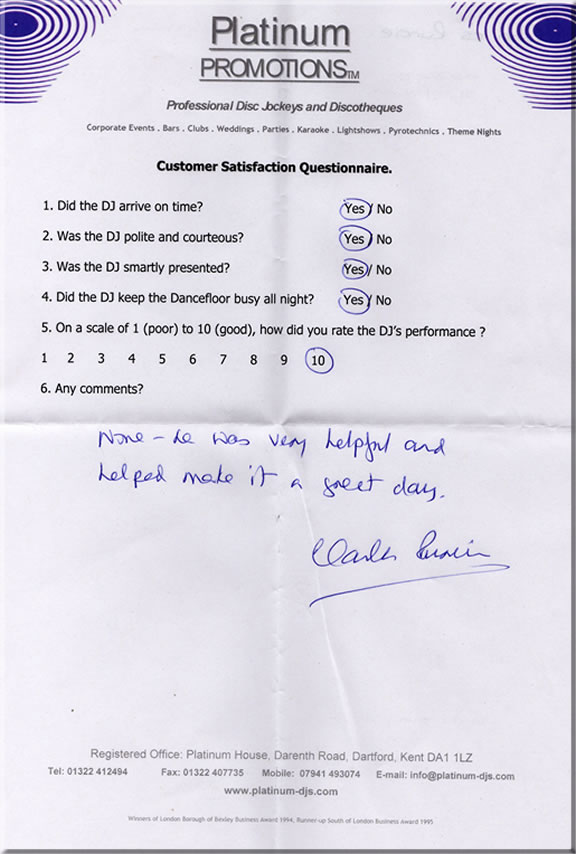 Platinum
PROMOTIONS™
Professional Disc Jockeys and Discotheques
Corporate Events . Bars . Clubs . Weddings . Parties . Karaoke . Lightshows . Pyrotechnics . Theme Nights
Customer Satisfaction Questionnaire.
1. Did the DJ arrive on time? Yes / No
2. Was the DJ polite and courteous? Yes / No
3. Was the DJ smartly presented? Yes / No
4. Did the DJ keep the Dancefloor busy all night? Yes / No
5. On a scale of 1 (poor) to 10 (good), how did you rate the DJ's performance ?
1 2 3 4 5 6 7 8 9 10
6. Any comments?
None - he was very helpful and
helped make it a great day.
Charles
Registered Office: Platinum House, Darenth Road, Dartford, Kent DA1 1LZ
Tel: 01322 412494 Fax: 01322 407735 Mobile: 07941 493074 E-mail: info@platinum-djs.com
www.platinum-djs.com
Winners of London Borough of Bexley Business Award 1994, Runner-up South of London Business Award 1995